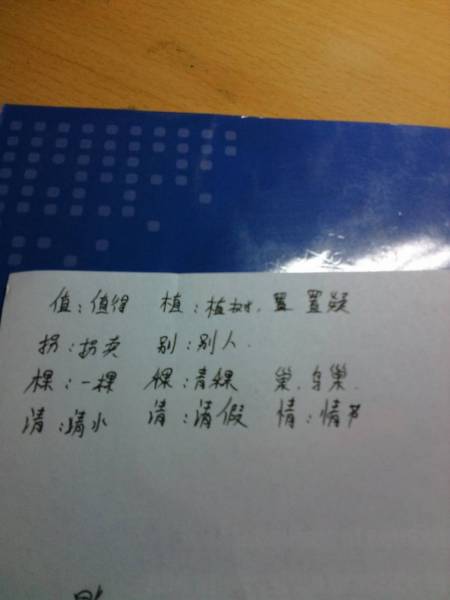 值：值得 植：植树. 置 置疑
拐：拐卖 别：别人.
棵：一棵 稞：青稞 巢. 鸟巢.
清：清水 请：请假 情：情节